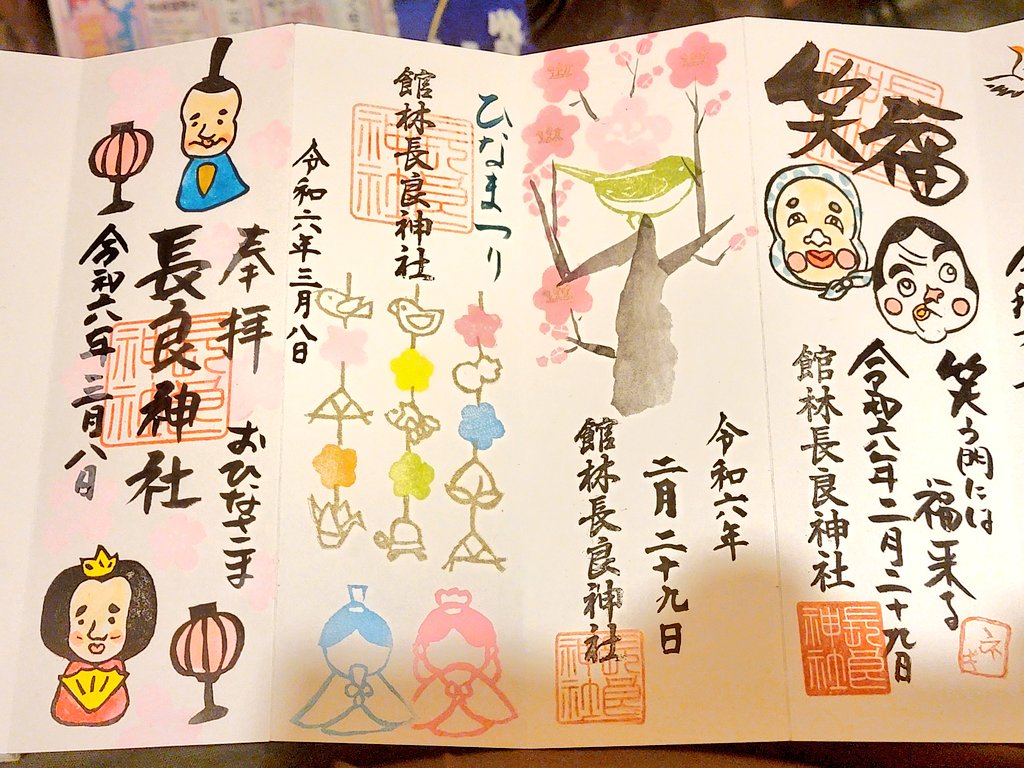 笑福
笑う門には
福来る
令和六年二月二十九日
館林長良神社
長良
神社
令和六年
二月二十九日
館林長良神社
長良
神社
ひなまつり
館林長良神社
長良
神社
令和六年三月八日
奉拝
おひなさま
長良神社
長良
神社
令和六年三月八日